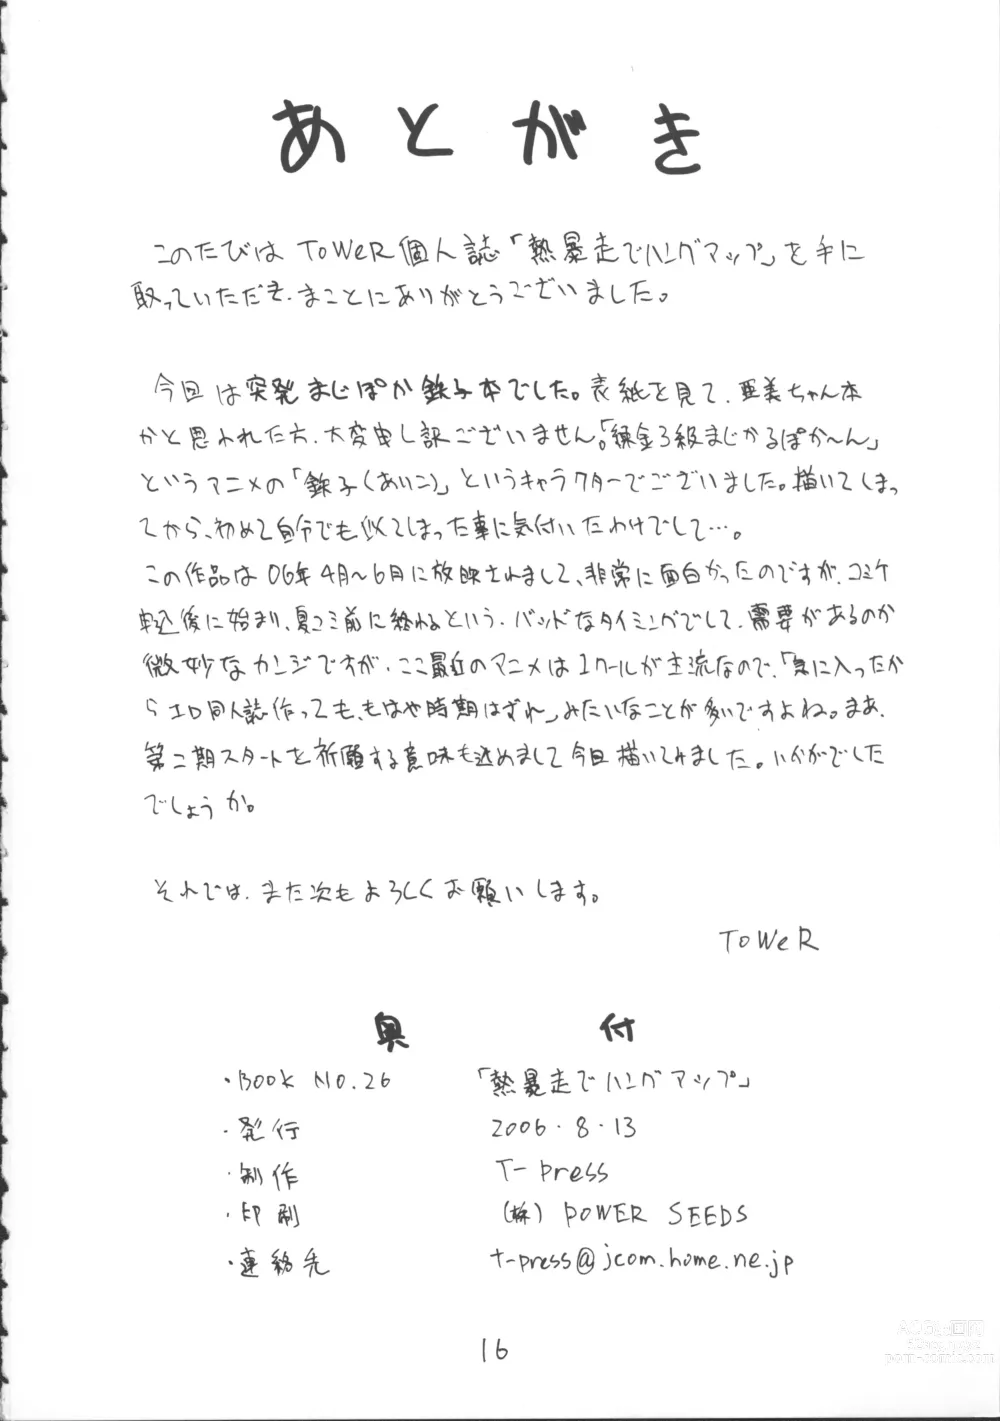 あとがき
このたびは ToWeR個人誌「熱暴走でハングアップ」を手に
取っていただき、まことにありがとうございました。
今回は突発まじぽか鉄子本でした。表紙を見て、亜美ちゃん本
かと思われた方、大変申し訳ございません。「錬金3級まじかるぽか〜ん」
というアニメの「鉄子(あいこ)」というキャラクターでございました。描いてしまっ
てから、初めて自分でも似てしまった事に気付いたわけでして…。
この作品は 06年4月〜6月に放映されまして、非常に面白かったのですが、コミケ
申込後に始まり、夏コミ前に終わるという、バッドなタイミングでして、需要があるのか
微妙なカンジですが、ここ最近のアニメは1クールが主流なので、「気に入ったか
らエロ同人誌作っても、もはや時期はずれ」みたいなことが多いですよね。まあ、
第二期スタートを祈願する意味も込めまして今回描いてみました。いかがでした
でしょうか。
それでは、また次もよろしくお願いします。
ToWeR
奥付
・Book No.26 「熱暴走でハングアップ」
・発行 2006・8・13
・制作 T-press
・印刷 (株) POWER SEEDS
・連絡先 t-press@jcom.home.ne.jp
16